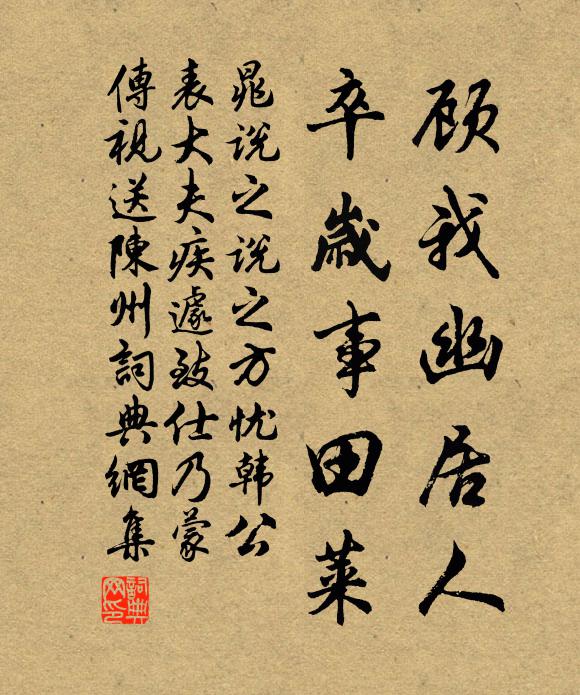 顾我幽居人
卒歲事田莱
晁说之说之方忧韩公
表大夫疾遽致仕乃蒙
傳視送陳州詞典網集
詞典网印